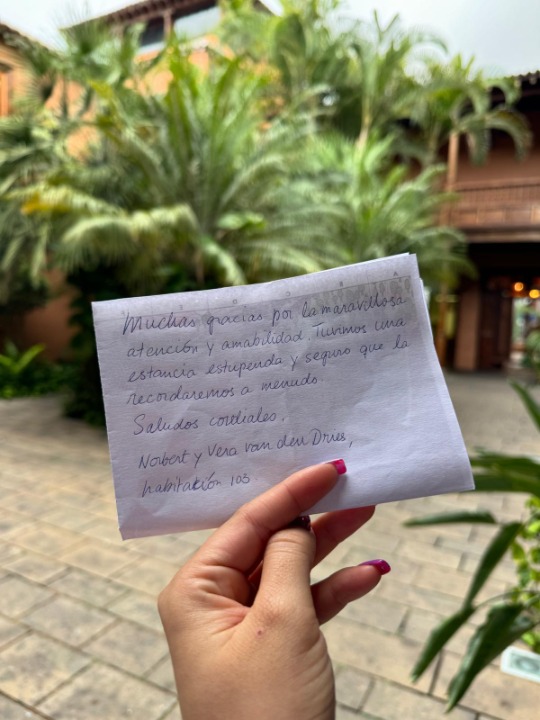 Muchas gracias por la maravillosa
atención y amabilidad. Tuvimos una
estancia estupenda y seguro que la
recordaremos a menudo.
Saludos cordiales,
Norbert y Vera van den Dries,
habitación 103